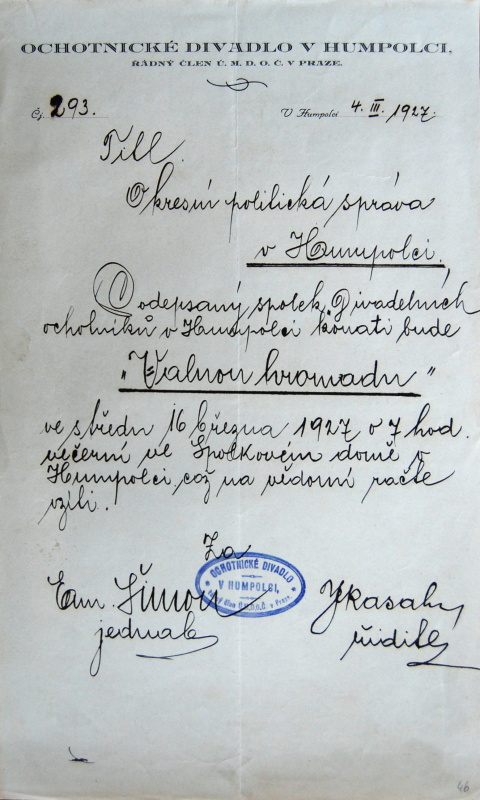 OCHOTNICKÉ DIVADLO V HUMPOLCI,
ŘÁDNÝ ČLEN Ú. M. D. O. Č. V PRAZE.
Čj. 293. V Humpolci 4. III. 1927.
Titl.
Okresní politická správa
v Humpolci,
Podepsaný spolek „Divadelních
ochotníků v Humpolci konati bude
„Valnou hromadu"
ve středu 16 března 1927 o 7 hod.
večerní ve Spolkovém domě v
Humpolci, což na vědomí račte
vzíti.
Za
OCHOTNICKÉ DIVADLO
V HUMPOLCI,
řádný člen Ú.M.D.O.Č. v Praze.
Em. Šimon
jednatel
ředitel
46